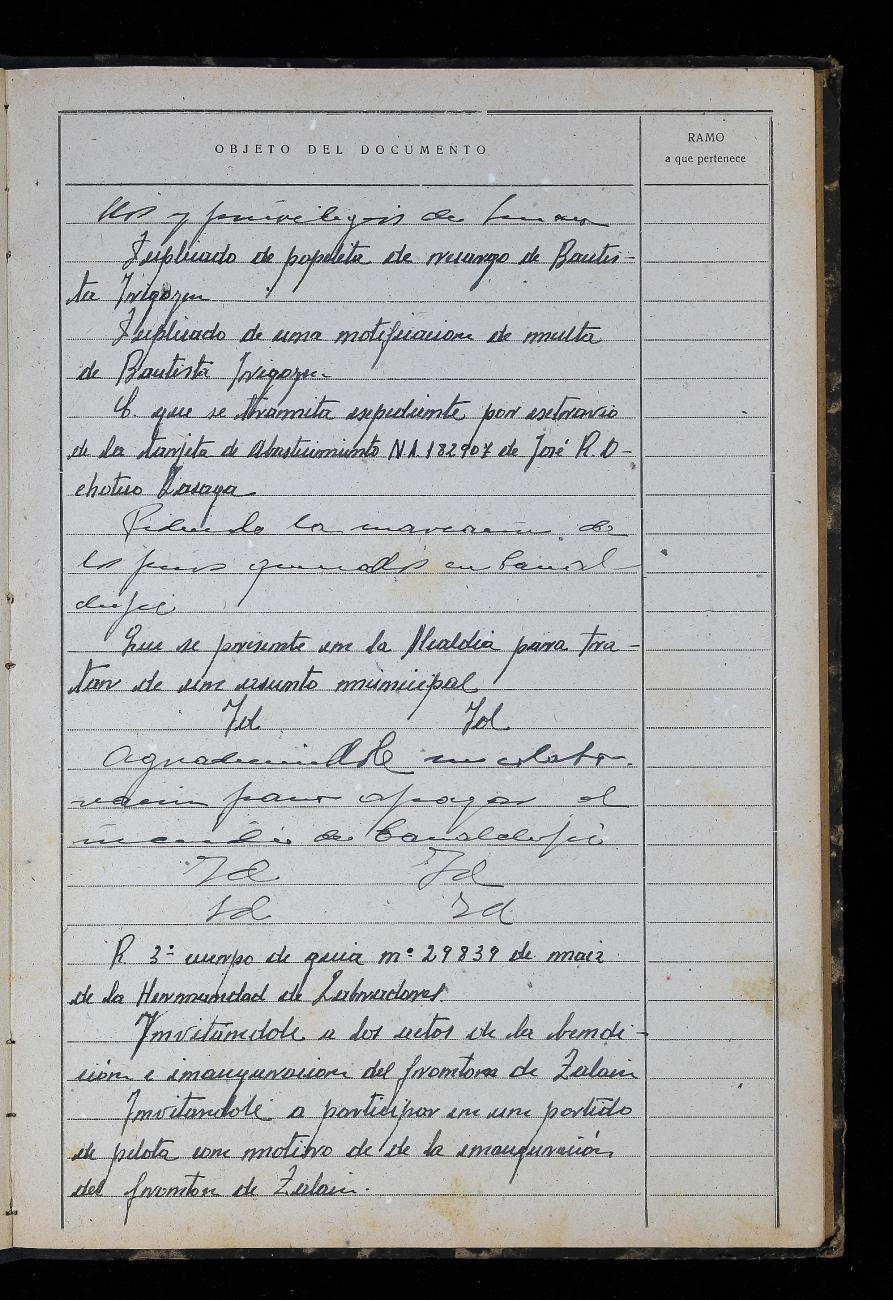 OBJETO DEL DOCUMENTO
RAMO
a que pertenece
y privilegios de
Duplicado de papeleta de recargo de Bautis-
ta Irigoyen
Duplicado de una notificacion de multa
de Bautista Irigoyen
C que se tramita espediente por estravio
de la tarjeta de Abastecimiento NA 182907 de José R. O-
choteco Lasaga
Pidiendo la marcacion de
los pinos quemados en Canal
depi
Que se presente en la Alcaldia para tra-
tar de un asunto municipal
Id Id
Agradeciendole su colabo-
racion para apagar el
incendio de Canaldepi
Id Id
Id Id
R 3º cuerpo de guia nº 29839 de maiz
de la Hermandad de Labradores
Invitandole a los actos de la bendi-
ción e inauguracion del fronton de Zalain
Invitandole a participar en un partido
de pelota con motivo de de la inauguración
del fronton de Zalain.